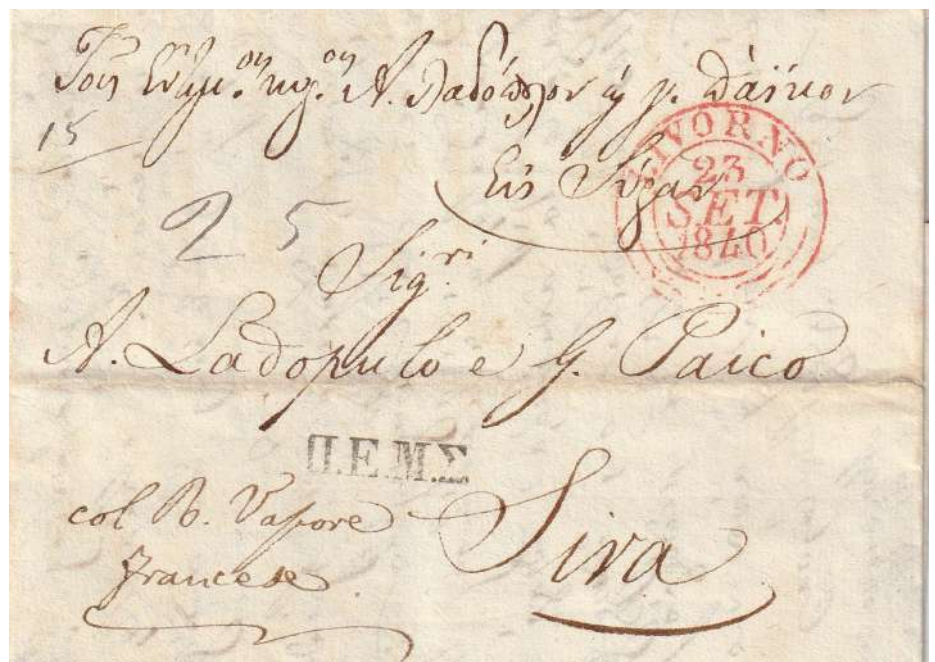 Τοῖς Εὐγμ.οις κυ.οις Α. Λαδόπουλον & γ. Πάϊκον
15
Εἰς Σύραν
LIVORNO
23
SET.
1840
25
Sig.ri
A. Ladopulo e G. Paico
Π.Ε.Μ.Σ
col B. Vapore
francese
Sira